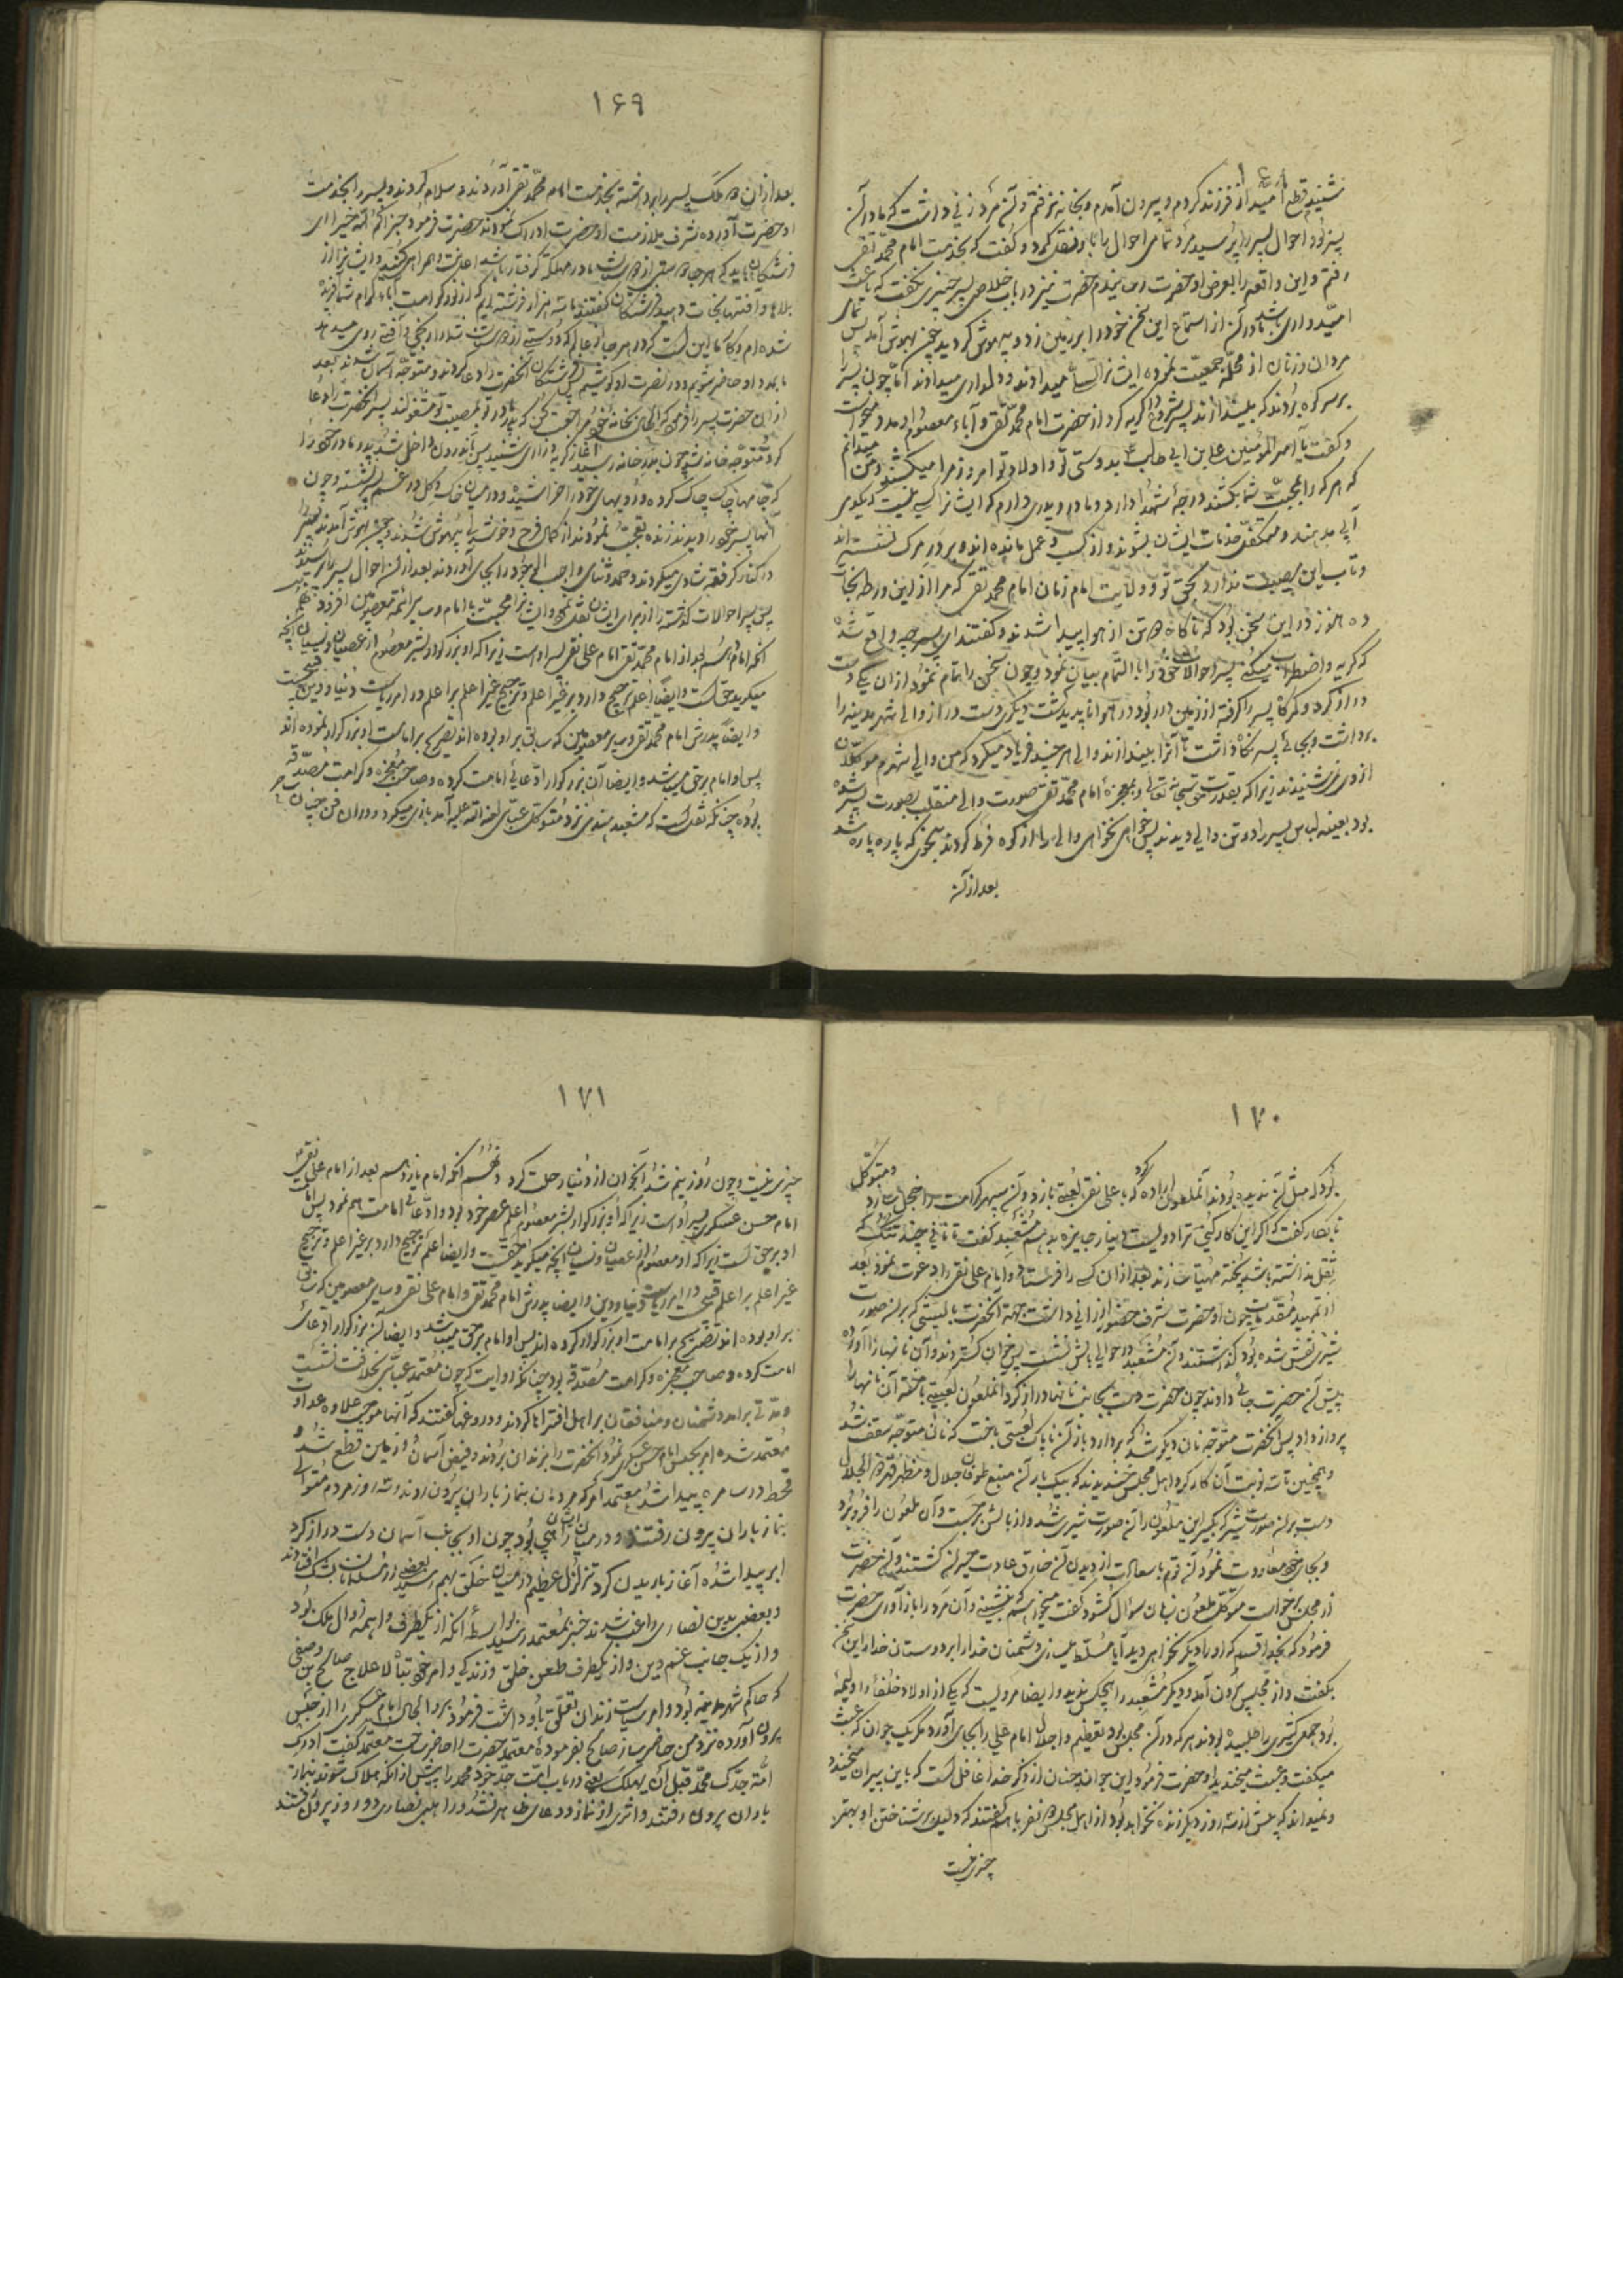 ۱۶۸
شنیدم قطع امید از فرزند کردم و بیرون آمدم و بخانه نرفتم و آن مرد زنی داشت که مادر آن
پسر بود احوال پسر را پرسید مرد تمامی احوال را باو نقل کرد و گفت که بخدمت امام محمد تقی
رفتم و این واقعه را بعرض او حضرت رسانیدم حضرت نیز در باب خلاصی پسر چیزی نگفت که باعث
امیدواری باشد مادر آن از استماع این سخن خود را بر زمین زد و بیهوش گردید چون بهوش آمد پس تمامی
مردان و زنان از محله جمعیت نموده ایشانرا تسلی میدادند و دلداری میدادند اما چون پسر را
بر سر کوه بردند که بیندازند پسر شروع گریه کرد از حضرت امام محمد تقی و آباء معصوم او مدد میخواست
و گفت یا امیر المؤمنین علی بن ابی طالب بدوستی تو و اولاد تو امروز مرا میکشند و من میدانم
که هر که را بمحبت شما بکشند درجه شهدا دارد و مادر و پدری دارم که ایشانرا کسی نیست که یکدم
آبی بدهند و متکفل خدمات ایشان بشوند و از کسب و عمل مانده اند و بر در مرگ نشسته اند
و تاب این مصیبت ندارند بحق تو و ولایت امام زمان امام محمد تقی که مرا از این ورطه نجات
ده هنوز در این سخن بود که ناگاه ده تن از هوا پیدا شدند و گفتند ای پسر چه واقع شده
که گریه و اضطراب میکنی پسر احوالات خود را بالتمام بیان نمود و چون سخن را تمام نمود از ان یکی دست
دراز کرد و کمرگاه پسر را گرفته از زمین در ربود در هوا ناپدید گشت دیگری دست دراز و والی شهر مدینه را
برداشت و بجای پسر نگاه داشت تا آنرا بیندازند والی هر چند فریاد میکرد که من والی شهرم موکلان
از وی نمی شنیدند زیرا که بقدرت حق سبحانه تعالی و بمعجزه امام محمد تقی صورت والی منقلب بصورت پسر شده
بود بعینه لباس پسر را در تن والی دیدند پس خواهی نخواهی والی را از کوه فرو کردند بنحوی که پاره پاره شد
بعد از آن
۱۶۹
بعد از ان ده ملک پسر را برداشته بخدمت امام محمد تقی آوردند و سلام کردند و پسر را بخدمت
او حضرت آورده شرف ملازمت او حضرت ادراک نمودند حضرت فرمود جزاکم الله خیرا ای
فرشتگان باید که هر جا
بلاها و آفتها نجات دهید فرشتگان گفتند ما سه هزار فرشته ایم که از نور کرامت آباء کرام شما آفریده
شده ایم و کار ما این است که در هر جای عالم که دوستی از دوستان شما را رنجی و آفتی روی میدهد
ما بمدد او حاضر شویم و در نصرت او کوشیم پس فرشتگان آنحضرت را دعا کردند و متوجه آسمان شدند بعد
از ان حضرت پسر را فرمود که الحال بخانه خود مراجعت کن که پدر و مادر تو بمصیبت تو مشغولند پسر آنحضرت را دعا
کرد و متوجه خانه شد چون بدر خانه رسید آغاز گریه و زاری شنید پس باندرون داخل شد پدر و مادر خود را
که جامها چاک چاک کرده و رویهای خود را خراشیده و در میان خاک و گل در غم پسر نشسته و چون
آنها پسر خود را دیدند زنده تعجب نمودند از کمال فرح و خوشحالی بیهوش شدند و چون بهوش آمدند پسر را
در کنار گرفته شادی میکردند و حمد و ثنای واجب الوجود را بجای آوردند بعد از آن احوال پسر را پرسیدند
پس پسر احوالات گذشته را از برای ایشان نقل نمود و ایشانرا محبت با امام و سایر ائمه معصومین افزود
آنکه امام دهم بعد از امام محمد تقی امام علی نقی پسر او است زیرا که او بزرگوار بشر معصوم از عصیان و نسیان آنچه
میگوید حق است و ایضا اعلم ترجیح دارد بر غیر اعلم و ترجیح غیر اعلم بر اعلم در امر ریاست دنیا و دین قبیح است
و ایضا پدرش امام محمد تقی و سایر معصومین که سابق بر او بوده اند تصریح بر امامت او بزرگوار نموده اند
پس او امام بر حق میباشد و ایضا آن بزرگوار ادعای امامت کرده و صاحب معجزه و کرامت مصدقه
بوده چنانکه نقل است که مشعبد هندی نزد متوکل عباسی لعنة الله علیه آمد بازی میکرد و در ان فن چنان ماهر
۱۷۰
بود که مثل آن ندیده بودند آنملعون اراده کرد که با علی نقی لعبه بازد و آن سپهر کرامت را خجل سازد و متوکل
نابکار گفت که اگر این کار کنی ترا دویست دینار جایزه بدهم مشعبد گفت تا نانی چند تنک که
ثقل نداشته باشد پخته مهیا سازند بعد از ان کس را فرستاد و امام علی نقی را دعوت نمود بعد
از تمهید مقدمات چون او حضرت شرف حضور ارزانی داشت بجهة آنحضرت بالشتی که بر آن صورت
شیری نقش شده بود گذاشتند و آن مشعبد در حوالی بالش نشست پس خوان گستردند و آن نانها را آورده
پیش آن حضرت جای دادند چون حضرت دست بجانب نانها دراز کرد آنملعون لعبتی باخته آن نانها را
پرواز داد پس آنحضرت متوجه نان دیگر شد که بردارد باز آن ناپاک لعبتی باخت که نان متوجه سقف شد
و همچنین تا سه نوبت آن کار کرد اهل مجلس خندیدند که بیک بار آن منبع طوفان جلال و مظهر قهر ذو الجلال
دست بر آن صورت شیر زد که بگیر این ملعون را آن صورت شیری شد و از بالش برجست و آن ملعون را فرو برد
و بجای خود معاودت نمود آن قوم با سعادت از دیدن آن خارق عادت حیران گشتند و آن حضرت
از مجلس برخواست متوکل ملعون زبان سوال گشود گفت میخواهم که بنشینی و آن مرد را باز آوری حضرت
فرمود که بخدا قسم که او را دیگر نخواهی دید آیا مسلط میسازی دشمنان خدا را بر دوستان خدا را این سخن
بگفت و از مجلس بیرون آمد و دیگر مشعبد را هیچکس ندید و ایضا مرویست که یکی از اولاد خلفا را ولیمه
بود جمعی کثیری را طلبیده بودند هر که در آن مجلس بود تعظیم و اجلال امام علی را بجای آورد مگر یک جوان که عبث
میگفت و عبث میخندید او حضرت فرمود این جوان چنان از ذکر خدا غافل است که باین پیران میخندد
و نمیداند که پیش از سه روز دیگر زنده نخواهد بود از اهل مجلس ده نفر با هم گفتند که دلیلی بر شناختن او بهتر
چیزی نیست
۱۷۱
چیزی نیست و چون روز سیم شد آنجوان از دنیا رحلت کرد و نهم آنکه امام یازدهم بعد از امام علی نقی
امام حسن عسکری پسر او است زیرا که او بزرگوار بشر معصوم اعلم عصر خود بود و ادعای امامت هم نمود پس امامت
او بر حق است زیرا که او معصوم از عصیان و نسیان آنچه میگوید حق است و ایضا اعلم ترجیح دارد بر غیر اعلم و ترجیح
غیر اعلم بر اعلم قبیح در امر ریاست دنیا و دین و ایضا پدرش امام محمد تقی و امام علی نقی و سایر معصومین که سابق
بر او بوده اند تصریح بر امامت او بزرگوار کرده اند پس او امام بر حق میباشد و ایضا آن بزرگوار ادعای
امامت کرده و صاحب معجزه و کرامت مصدقه بود چنانکه روایت که چون معتمد عباسی بخلافت نشست
و مدتی برآمد دشمنان و منافقان بر اهل افتراها کردند و دروغها گفتند که آنها موجب علاوه عداوت
معتمد شده امر بحبس امام حسن عسکری نمود آنحضرت را بزندان بردند و فیض آسمان از زمین قطع شد و
قحط در سامره پیدا شد معتمد امر کرد مردمان بنماز باران بیرون روند و سه روز مردم متوالی
بنماز باران بیرون رفتند و در میان ایشان راهبی بود چون او بجانب آسمان دست دراز کرد
ابر پیدا شده آغاز باریدن کرد تزلزل عظیم در میان خلق بهم رسید بعضی از مسلمانان بشک افتادند
و بعضی بدین نصاری راغب شدند خبر بمعتمد رسید بواسطه آنکه از یکطرف واهمه زوال ملک بود
و از یک جانب غم دین و از یکطرف طعن خلق و زندگی و امر خود تباه لاعلاج صالح بن وصفی
که حاکم شهر مدینه بود و امر سیاست زندان تعلق باو داشت فرمود برو الحال امام عسکری را از حبس
بیرون آورده نزد من حاضر ساز صالح بفرموده معتمد حضرت را حاضر ساخت معتمد گفت ادرک
امة جدک محمد قبل ان یهلک یعنی دریاب امت جد خود محمد را پیش از آنکه هلاک شوند بنماز
باران بیرون رفتند و اثری از نماز و دعای ظاهر نشد و راهبی نصاری دو روز بیرون رفتند